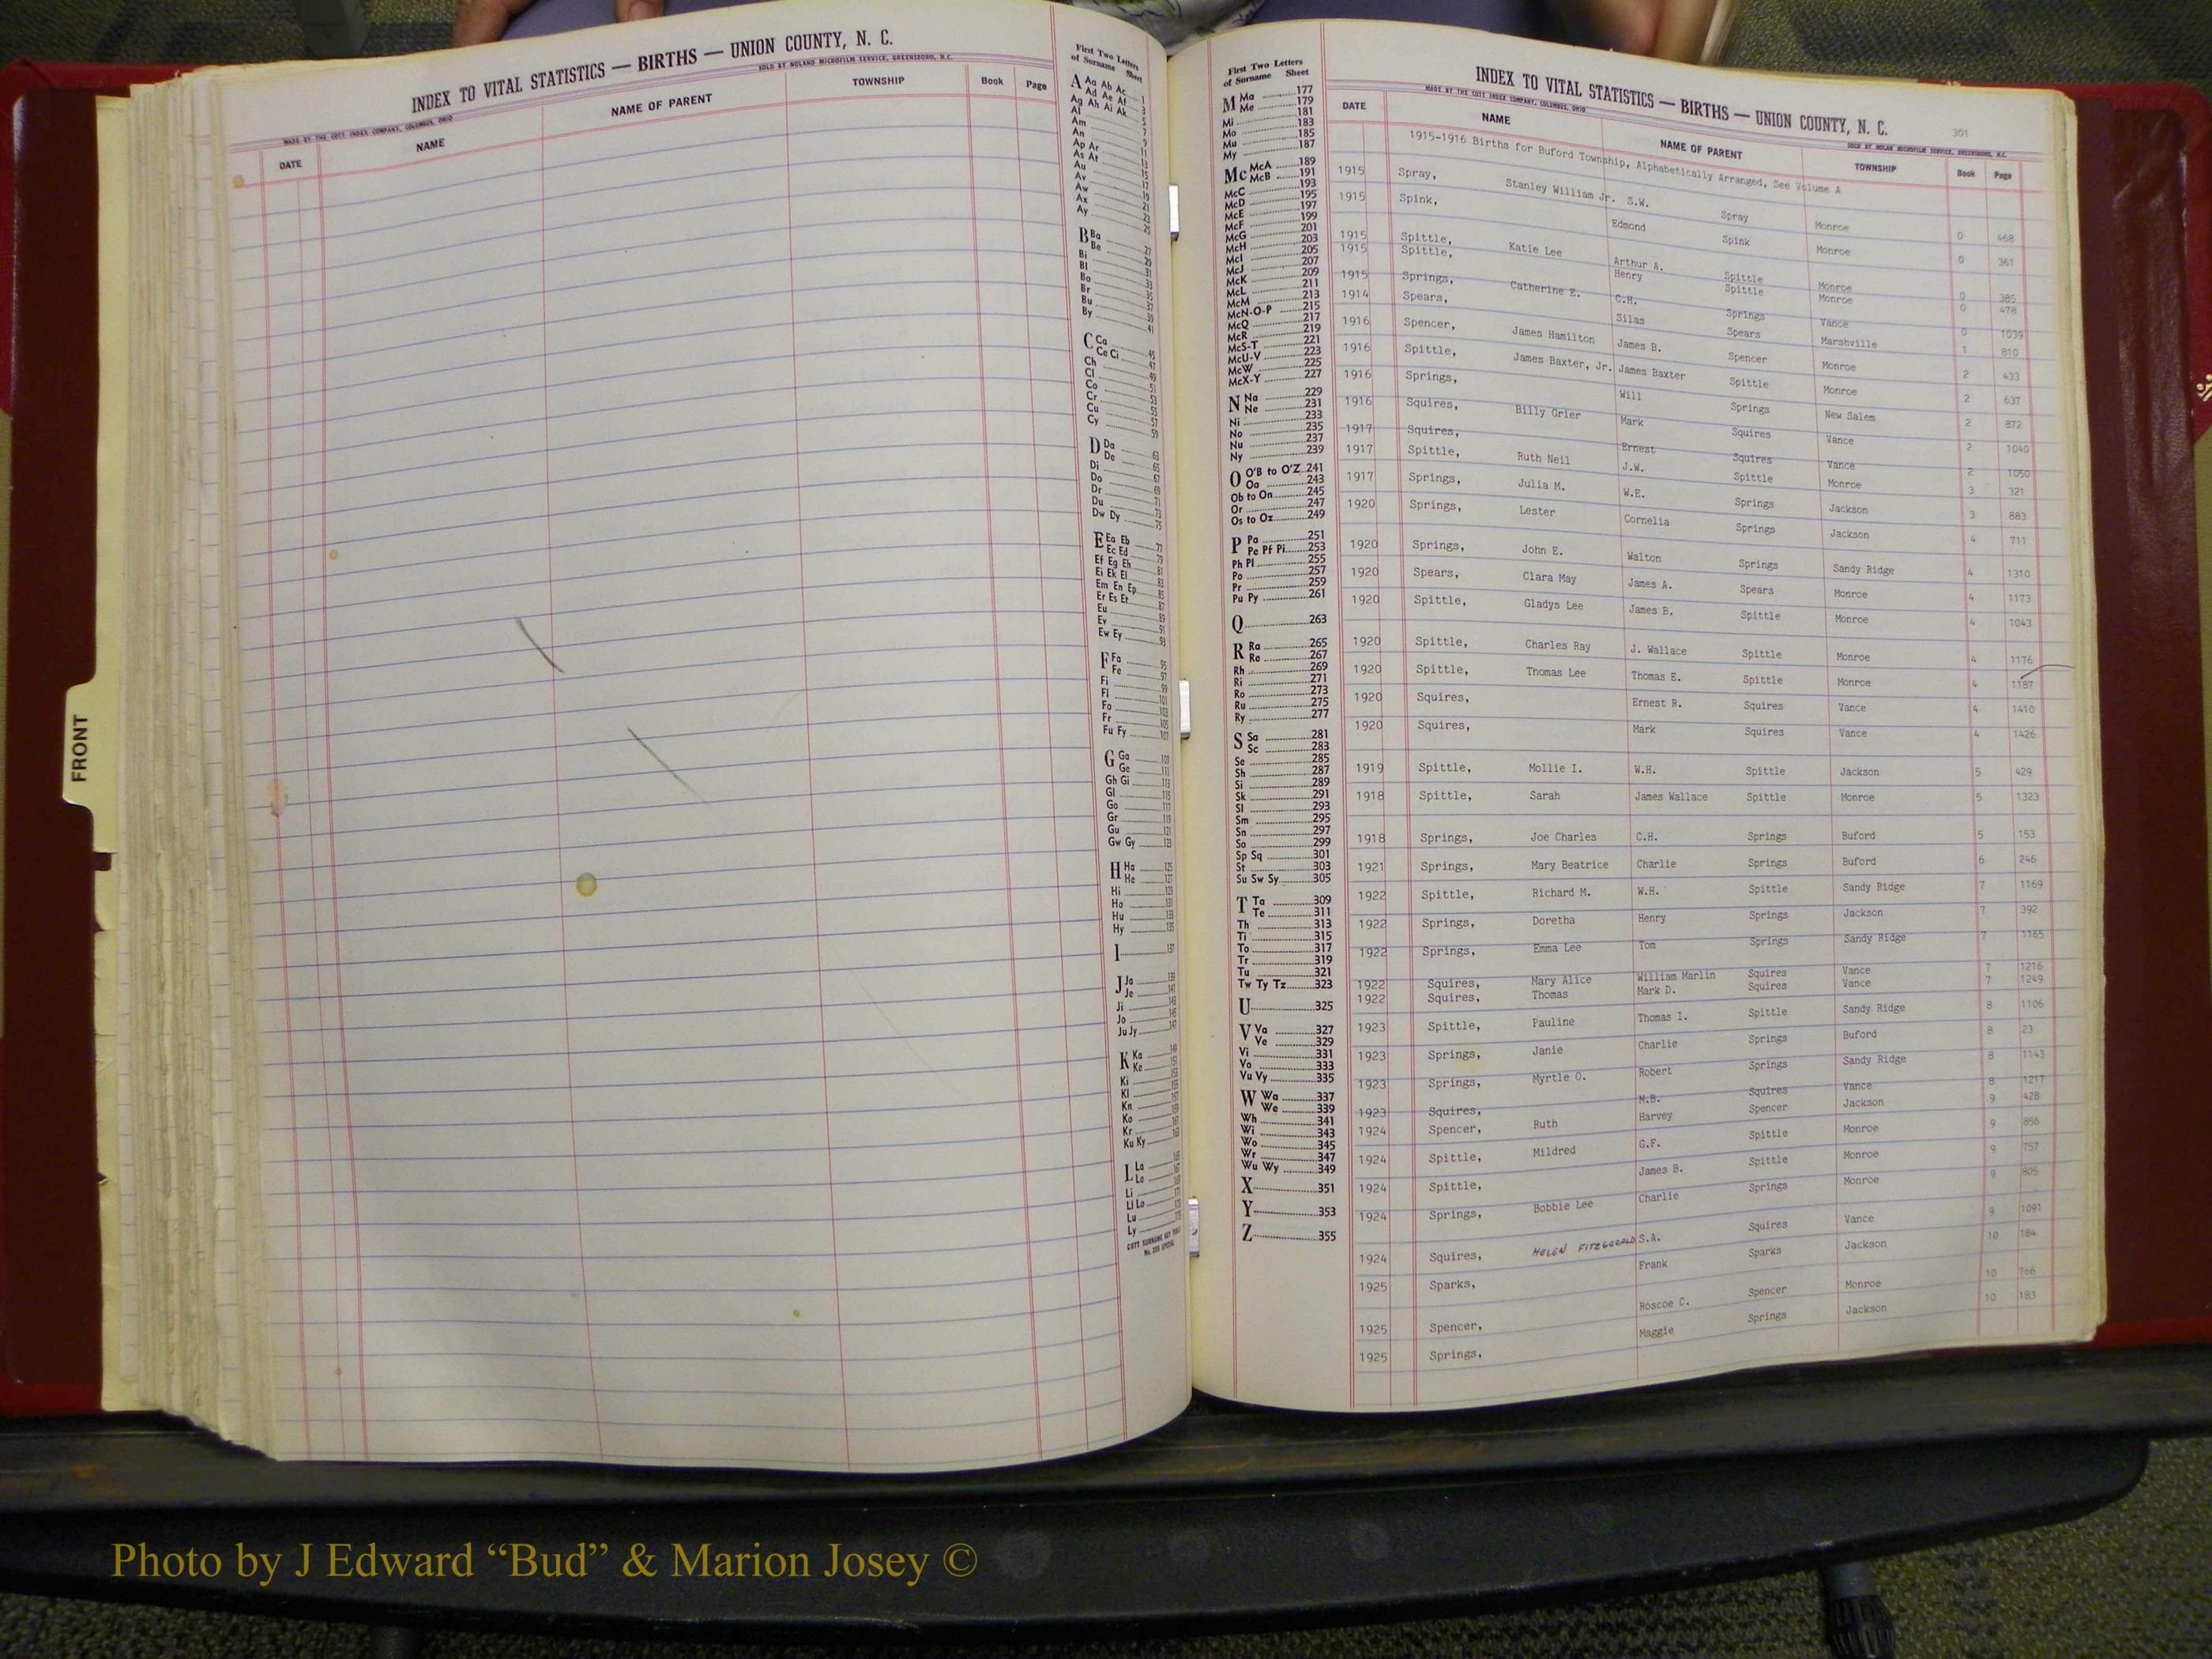 INDEX TO VITAL STATISTICS — BIRTHS — UNION COUNTY, N. C.
MADE BY THE COTT INDEX COMPANY, COLUMBUS, OHIO SOLD BY NOLAND MICROFILM SERVICE, GREENSBORO, N.C.
DATE NAME NAME OF PARENT TOWNSHIP Book Page
First Two Letters
of Surname Sheet
A Aa Ab Ac 1
Ad Ae Af 3
Ag Ah Ai Ak 5
Al 7
Am 9
An 11
Ap Ar 13
As At 15
Au 17
Av 19
Aw 21
Ax 23
Ay 25
B Ba 27
Be 29
Bi 31
Bl 33
Bo 35
Br 37
Bu 39
By 41
C Ca 45
Ce Ci 47
Ch 49
Cl 51
Co 53
Cr 55
Cu 57
Cy 59
D Da 63
De 65
Di 67
Do 69
Dr 71
Du 73
Dw Dy 75
E Ea Eb 77
Ec Ed
Ef Eg Eh 81
Ei Ek El 83
Em En Ep 85
Er Es Et 87
Eu 89
Ev 91
Ew Ey 93
F Fa 95
Fe 97
Fi 99
Fl 101
Fo 103
Fr 105
Fu Fy 107
G Ga
Ge 111
Gh Gi 113
Gl 115
Go 117
Gr 119
Gu 121
Gw Gy 123
H Ha 125
He 127
Hi 129
Ho 131
Hu 133
Hy 135
I 137
J Ja 139
Je 141
Ji 143
Jo 145
Ju Jy 147
K Ka 149
Ke
Ki
Kl
Kn
Ko
Kr
Ku Ky
L La
Le
Li
Ll Lo
Lu
Ly
COTT SURNAME KEY
FRONT
First Two Letters
of Surname Sheet
M Ma 177
Me 179
Mi 181
Mo 183
Mu 185
My 187
Mc McA 189
McB 191
McC 193
McD 195
McE 197
McF 199
McG 201
McH 203
McI 205
McJ 207
McK 209
McL 211
McM 213
McN-O-P 215
McQ 217
McR 219
McS-T 221
McU-V 223
McW 225
McX-Y 227
N Na 229
Ne 231
Ni 233
No 235
Nu 237
Ny 239
O O'B to O'Z 241
Oa 243
Ob to On 245
Or 247
Os to Oz 249
P Pa 251
Pe Pf Pi 253
Ph Pl 255
Po 257
Pr 259
Pu Py 261
Q 263
R Ra 265
Re 267
Rh 269
Ri 271
Ro 273
Ru 275
Ry 277
S Sa 281
Sc 283
Se 285
Sh 287
Si 289
Sk 291
Sl 293
Sm 295
Sn 297
So 299
Sp Sq 301
St 303
Su Sw Sy 305
T Ta 309
Te 311
Th 313
Ti 315
To 317
Tr 319
Tu 321
Tw Ty Tz 323
U 325
V Va 327
Ve 329
Vi 331
Vo 333
Vu Vy 335
W Wa 337
We 339
Wh 341
Wi 343
Wo 345
Wr 347
Wu Wy 349
X 351
Y 353
Z 355
INDEX TO VITAL STATISTICS — BIRTHS — UNION COUNTY, N. C. 301
MADE BY THE COTT INDEX COMPANY, COLUMBUS, OHIO SOLD BY NOLAN MICROFILM SERVICE, GREENSBORO, N.C.
DATE NAME NAME OF PARENT TOWNSHIP Book Page
1915-1916 Births for Buford Township, Alphabetically Arranged, See Volume A
1915 Spray, Stanley William Jr. S.W. Spray Monroe 0 468
1915 Spink, Edmond Spink Monroe 0 361
1915 Spittle, Katie Lee Arthur A. Spittle Monroe 0 385
1915 Spittle, Henry Spittle Monroe 0 478
1915 Springs, Catherine E. C.H. Springs Vance 0 1039
1914 Spears, Silas Spears Marshville 1 810
1916 Spencer, James Hamilton James B. Spencer Monroe 2 433
1916 Spittle, James Baxter, Jr. James Baxter Spittle Monroe 2 637
1916 Springs, Will Springs New Salem 2 872
1916 Squires, Billy Grier Mark Squires Vance 2 1040
1917 Squires, Ernest Squires Vance 2 1050
1917 Spittle, Ruth Neil J.W. Spittle Monroe 3 321
1917 Springs, Julia M. W.E. Springs Jackson 3 883
1920 Springs, Lester Cornelia Springs Jackson 4 711
1920 Springs, John E. Walton Springs Sandy Ridge 4 1310
1920 Spears, Clara May James A. Spears Monroe 4 1173
1920 Spittle, Gladys Lee James B. Spittle Monroe 4 1043
1920 Spittle, Charles Ray J. Wallace Spittle Monroe 4 1176
1920 Spittle, Thomas Lee Thomas E. Spittle Monroe 4 1187
1920 Squires, Ernest R. Squires Vance 4 1410
1920 Squires, Mark Squires Vance 4 1426
1919 Spittle, Mollie I. W.H. Spittle Jackson 5 429
1918 Spittle, Sarah James Wallace Spittle Monroe 5 1323
1918 Springs, Joe Charles C.H. Springs Buford 5 153
1921 Springs, Mary Beatrice Charlie Springs Buford 6 246
1922 Spittle, Richard M. W.H. Spittle Sandy Ridge 7 1169
1922 Springs, Doretha Henry Springs Jackson 7 392
1922 Springs, Emma Lee Tom Springs Sandy Ridge 7 1165
1922 Squires, Mary Alice William Marlin Squires Vance 7 1216
1922 Squires, Thomas Mark D. Squires Vance 7 1249
1923 Spittle, Pauline Thomas I. Spittle Sandy Ridge 8 1106
1923 Springs, Janie Charlie Springs Buford 8 23
1923 Springs, Myrtle O. Robert Springs Sandy Ridge 8 1143
1923 Squires, M.B. Squires Vance 8 1217
1924 Spencer, Ruth Harvey Spencer Jackson 9 428
1924 Spittle, Mildred G.F. Spittle Monroe 9 856
1924 Spittle, James B. Spittle Monroe 9 757
1924 Springs, Bobbie Lee Charlie Springs Monroe 9 805
1924 Squires, HELEN FITZGERALD S.A. Squires Vance 9 1091
1925 Sparks, Frank Sparks Jackson 10 184
1925 Spencer, Roscoe C. Spencer Monroe 10 766
1925 Springs, Maggie Springs Jackson 10 183
Photo by J Edward “Bud” & Marion Josey ©